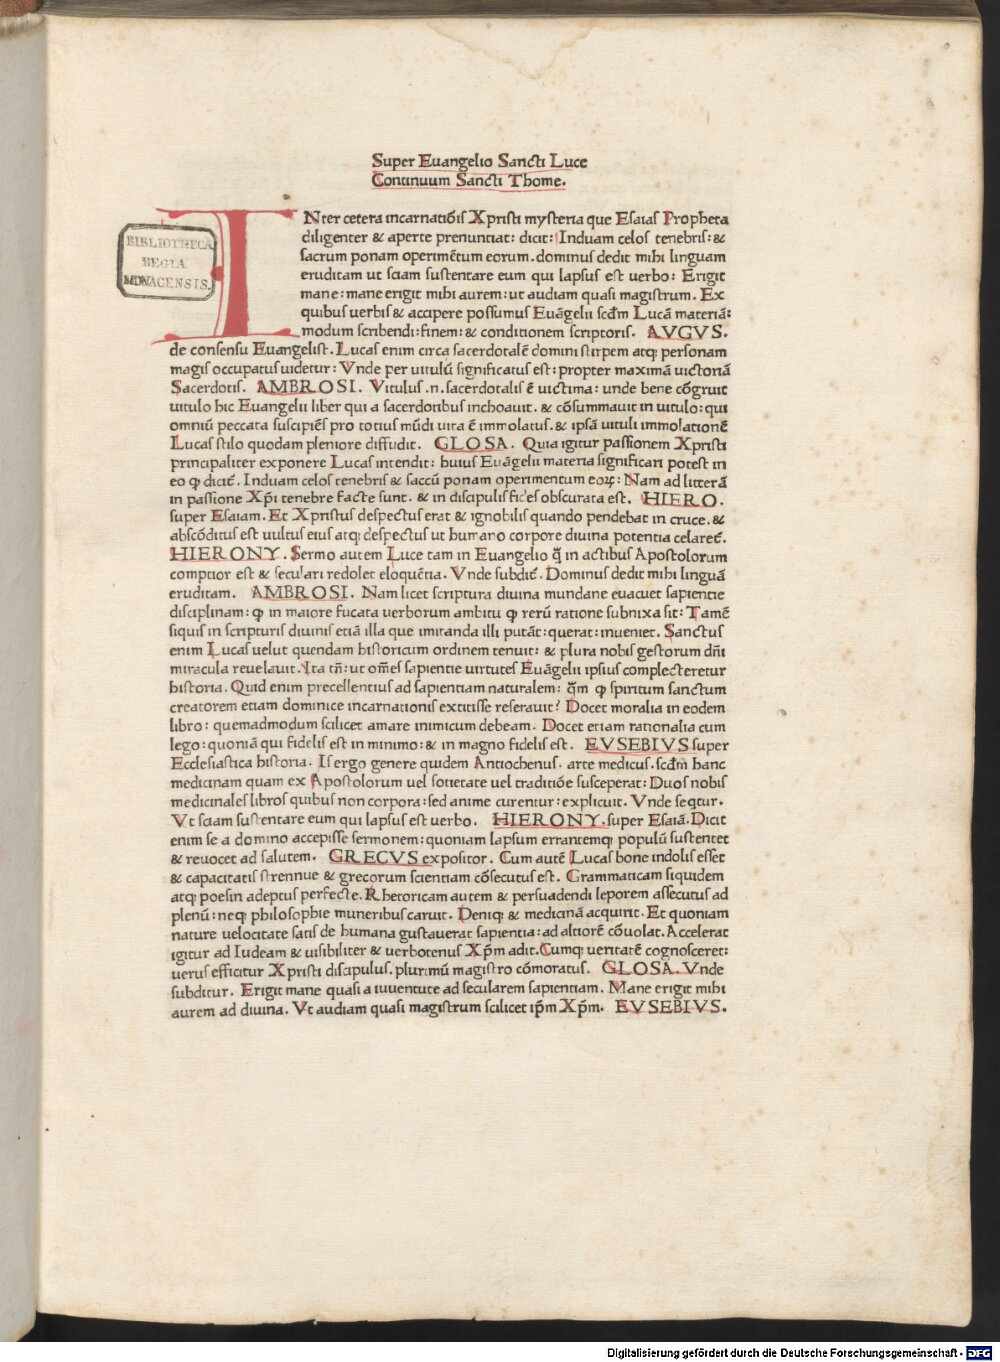 Super Euangelio Sancti Luce
Continuum Sancti Thome.
INter cetera incarnatiõis Xpristi mysteria que Esaias Propheta
diligenter & aperte prenuntiat: dicit: Induam celos tenebris: &
sacrum ponam operimẽtum eorum. dominus dedit mihi linguam
eruditam ut sciam sustentare eum qui lapsus est uerbo: Erigit
mane: mane erigit mihi aurem: ut audiam quasi magistrum. Ex
quibus uerbis & accipere possumus Euãgelii scđm Lucã materiã:
modum scribendi: finem: & conditionem scriptoris. AVGVS.
de consensu Euangelist. Lucas enim circa sacerdotalẽ domini stirpem atq; personam
magis occupatus uidetur: Vnde per uitulũ significatus est: propter maximã uictoriã
Sacerdotis. AMBROSI. Vitulus .n. sacerdotalis ẽ uictima: unde bene cõgruit
uitulo hic Euangelii liber qui a sacerdotibus inchoauit. & cõsummauit in uitulo: qui
omniũ peccata suscipiẽs pro totius mũdi uita ẽ immolatus. & ipsã uituli immolationẽ
Lucas stilo quodam pleniore diffudit. GLOSA. Quia igitur passionem Xpristi
principaliter exponere Lucas intendit: huius Euãgelii materia significari potest in
eo ꝙ dicit̃. Induam celos tenebris & saccũ ponam operimentum eoꝝ: Nam ad litterã
in passione Xp̃i tenebre facte sunt. & in discipulis fides obscurata est. HIERO.
super Esaiam. Et Xpristus despectus erat & ignobilis quando pendebat in cruce. &
abscõditus est uultus eius atq; despectus ut humano corpore diuina potentia celaret̃.
HIERONY. Sermo autem Luce tam in Euangelio q̃ in actibus Apostolorum
comptior est & seculari redolet eloquẽtia. Vnde subdit̃. Dominus dedit mihi linguã
eruditam. AMBROSI. Nam licet scriptura diuina mundane euacuet sapientie
disciplinam: ꝙ in maiore fucata uerborum ambitu ꝙ rerũ ratione subnixa sit: Tamẽ
siquis in scripturis diuinis etiã illa que imitanda illi putãt: querat: inueniet. Sanctus
enim Lucas uelut quendam historicum ordinem tenuit: & plura nobis gestorum dñi
miracula reuelauit. Ita tñ: ut om̃es sapientie uirtutes Euãgelii ipsius complecteretur
historia. Quid enim precellentius ad sapientiam naturalem: q̃m ꝙ spiritum sanctum
creatorem etiam dominice incarnationis extitisse reserauit? Docet moralia in eodem
libro: quemadmodum scilicet amare inimicum debeam. Docet etiam rationalia cum
lego: quoniã qui fidelis est in minimo: & in magno fidelis est. EVSEBIVS super
Ecclesiastica historia. Is ergo genere quidem Antiochenus. arte medicus. scđm hanc
medicinam quam ex Apostolorum uel societate uel traditiõe susceperat: Duos nobis
medicinales libros quibus non corpora: sed anime curentur: explicuit. Vnde seqtur.
Vt sciam sustentare eum qui lapsus est uerbo. HIERONY. super Esaiã. Dicit
enim se a domino accepisse sermonem: quoniam lapsum errantemq; populũ sustentet
& reuocet ad salutem. GRECVS expositor. Cum autẽ Lucas bone indolis esset
& capacitatis strennue & grecorum scientiam cõsecutus est. Grammaticam siquidem
atq; poesin adeptus perfecte. Rhetoricam autem & persuadendi leporem assecutus ad
plenũ: neq; philosophie muneribus caruit. Deniq; & medicinã acquirit. Et quoniam
nature uelocitate satis de humana gustauerat sapientia: ad altiorẽ cõuolat. Accelerat
igitur ad Iudeam & uisibiliter & uerbotenus Xp̃m adit. Cumq; ueritatẽ cognosceret:
uerus efficitur Xpristi discipulus. plurimũ magistro cõmoratus. GLOSA. Vnde
subditur. Erigit mane quasi a iuuentute ad secularem sapientiam. Mane erigit mihi
aurem ad diuina. Vt audiam quasi magistrum scilicet ip̃m Xp̃m. EVSEBIVS.
BIBLIOTHECA
REGIA
MONACENSIS.
Digitalisierung gefördert durch die Deutsche Forschungsgemeinschaft - DFG